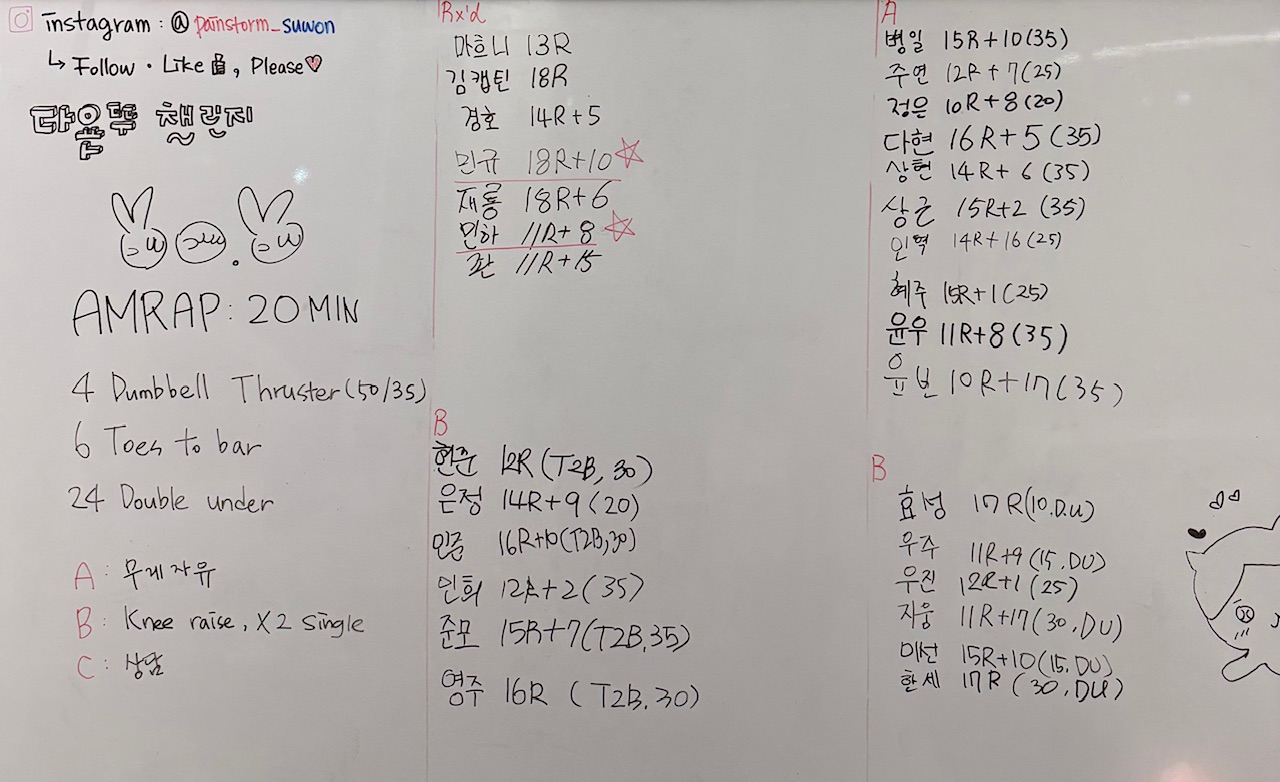 instagram : @ painstorm_suwon
↳ Follow · Like 👍, Please♡
다음뚜 챌린지
AMRAP : 20 MIN
4 Dumbbell Thruster (50/35)
6 Toes to bar
24 Double under
A : 무게자유
B : Knee raise, X2 single
C : 상담
Rx'd
마흐니 13R
김캡틴 18R
경호 14R+5
민규 18R+10 ☆
재룡 18R+6
민하 11R+8 ☆
11R+15
B
현준 12R (T2B, 30)
은정 14R+9 (20)
민준 16R+10 (T2B, 30)
민희 12R+2 (35)
준모 15R+7 (T2B, 35)
영주 16R (T2B, 30)
A
병일 15R+10 (35)
주연 12R+7 (25)
정은 10R+8 (20)
다현 16R+5 (35)
상현 14R+6 (35)
상근 15R+2 (35)
인혁 14R+16 (25)
혜주 15R+1 (25)
윤우 11R+8 (35)
윤빈 10R+17 (35)
B
효성 17R (10, D.U)
우주 11R+9 (15, DU)
우진 12R+1 (25)
지웅 11R+17 (30, DU)
미선 15R+10 (15, DU)
한세 17R (30, DU)